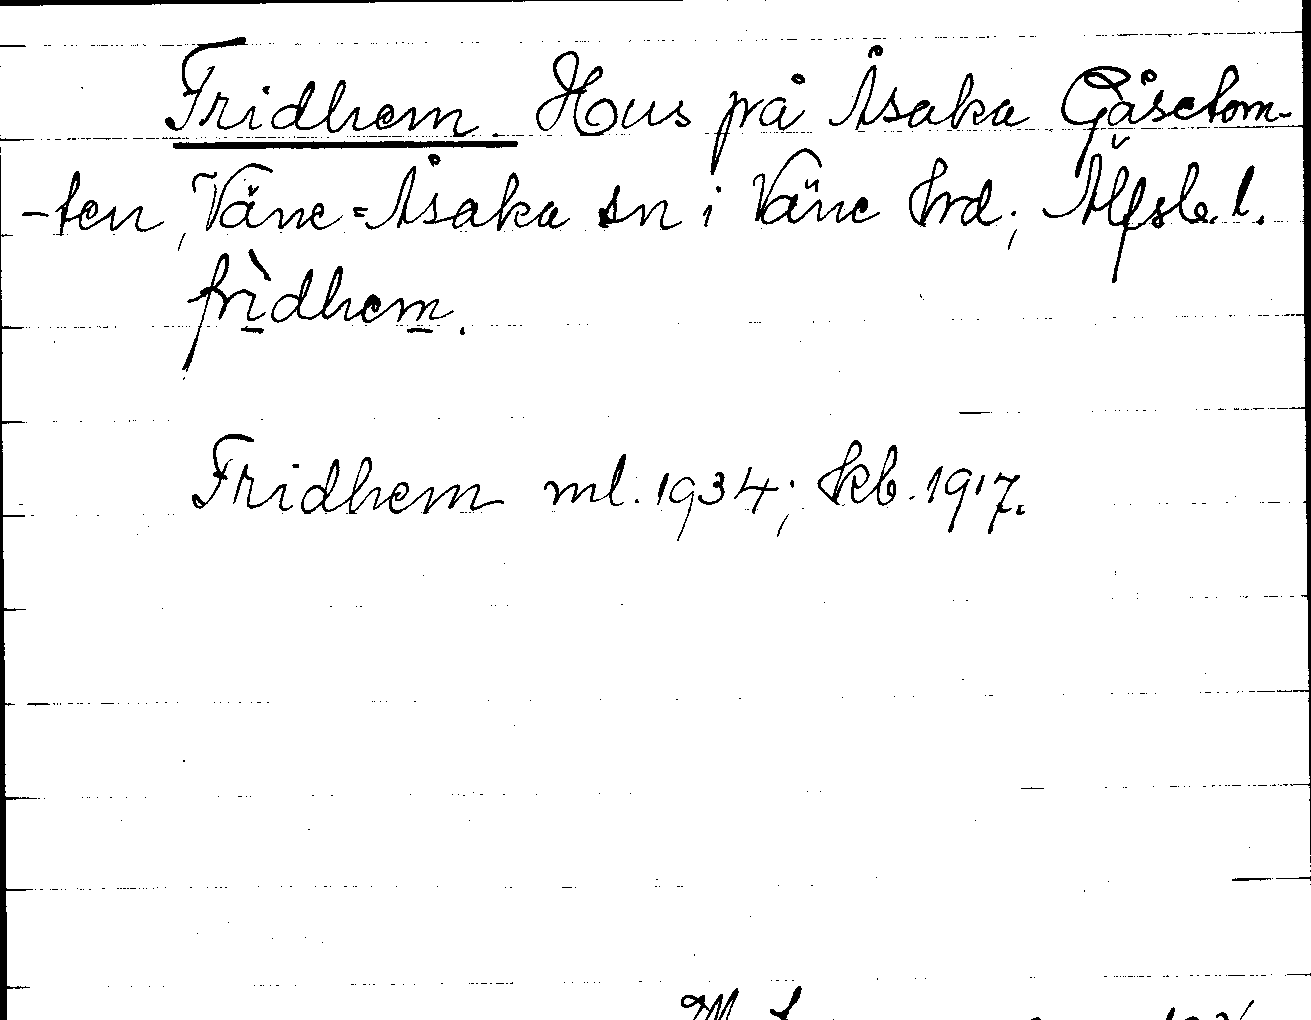 Fridhem. Hus på Åsaka Gåsetom-
-ten, Väne=Åsaka sn i Väne hrd; Älfsb. l.
frì̲dhem̲.
Fridhem ml. 1934; kb. 1917.